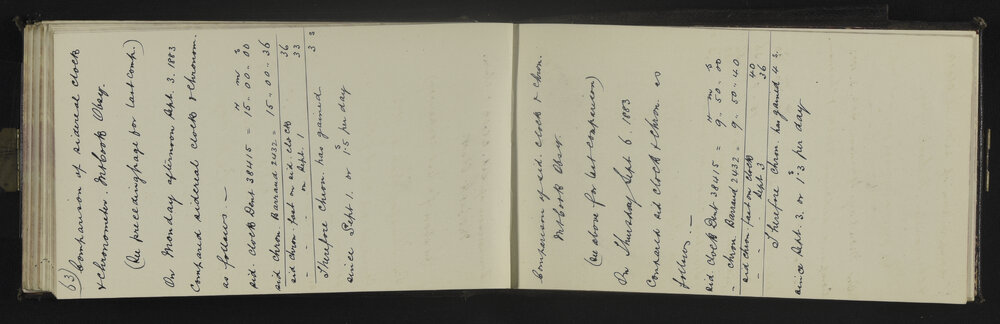 63) Comparison of sidereal clock
& chronometer. Mtbrook Obsy.
(See preceding page for last comp.)
On Monday afternoon Sept. 3. 1883
Compared sidereal clock & Chronom.
as follows –
H m s
sid. clock Dent 38415 = 15 .. 00 .. 00
sid chron Barraud 2432 = 15 .. 00 .. 36
sid chron fast on sid. clock 36
" " " on Sept. 1 33
Therefore chron. has gained 3 s
since Sept. 1. or 1.5 s per day
Comparison of sid. clock & chron.
Mtbrook Obsy.
(See above for last comparison)
On Thursday Sept 6. 1883
Compared sid clock & chron as
follows –
H m s
sid clock Dent 38415 = 9 .. 50 .. 00
" chron Barraud 2432 = 9 .. 50 .. 40
sid chron fast on clock 40
" " " Sept 3 36
Therefore chron. has gained 4 s.
since Sept. 3. or 1.3 s per day